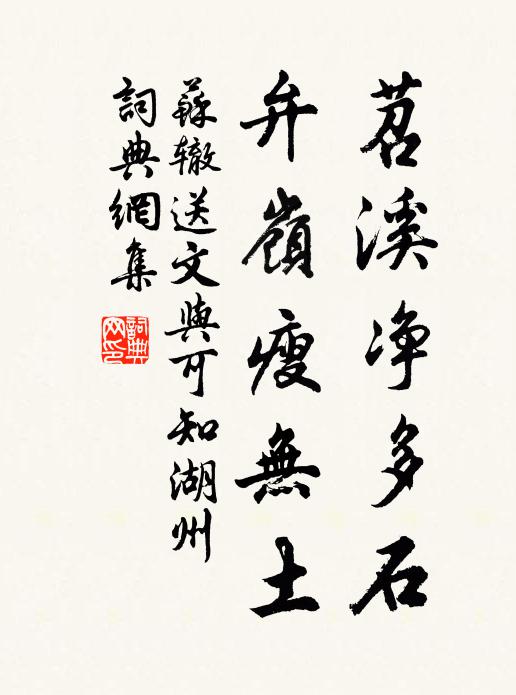 苕溪净多石
弁嶺瘦無土
蘇辙送文與可知湖州
詞典網集
詞典網印